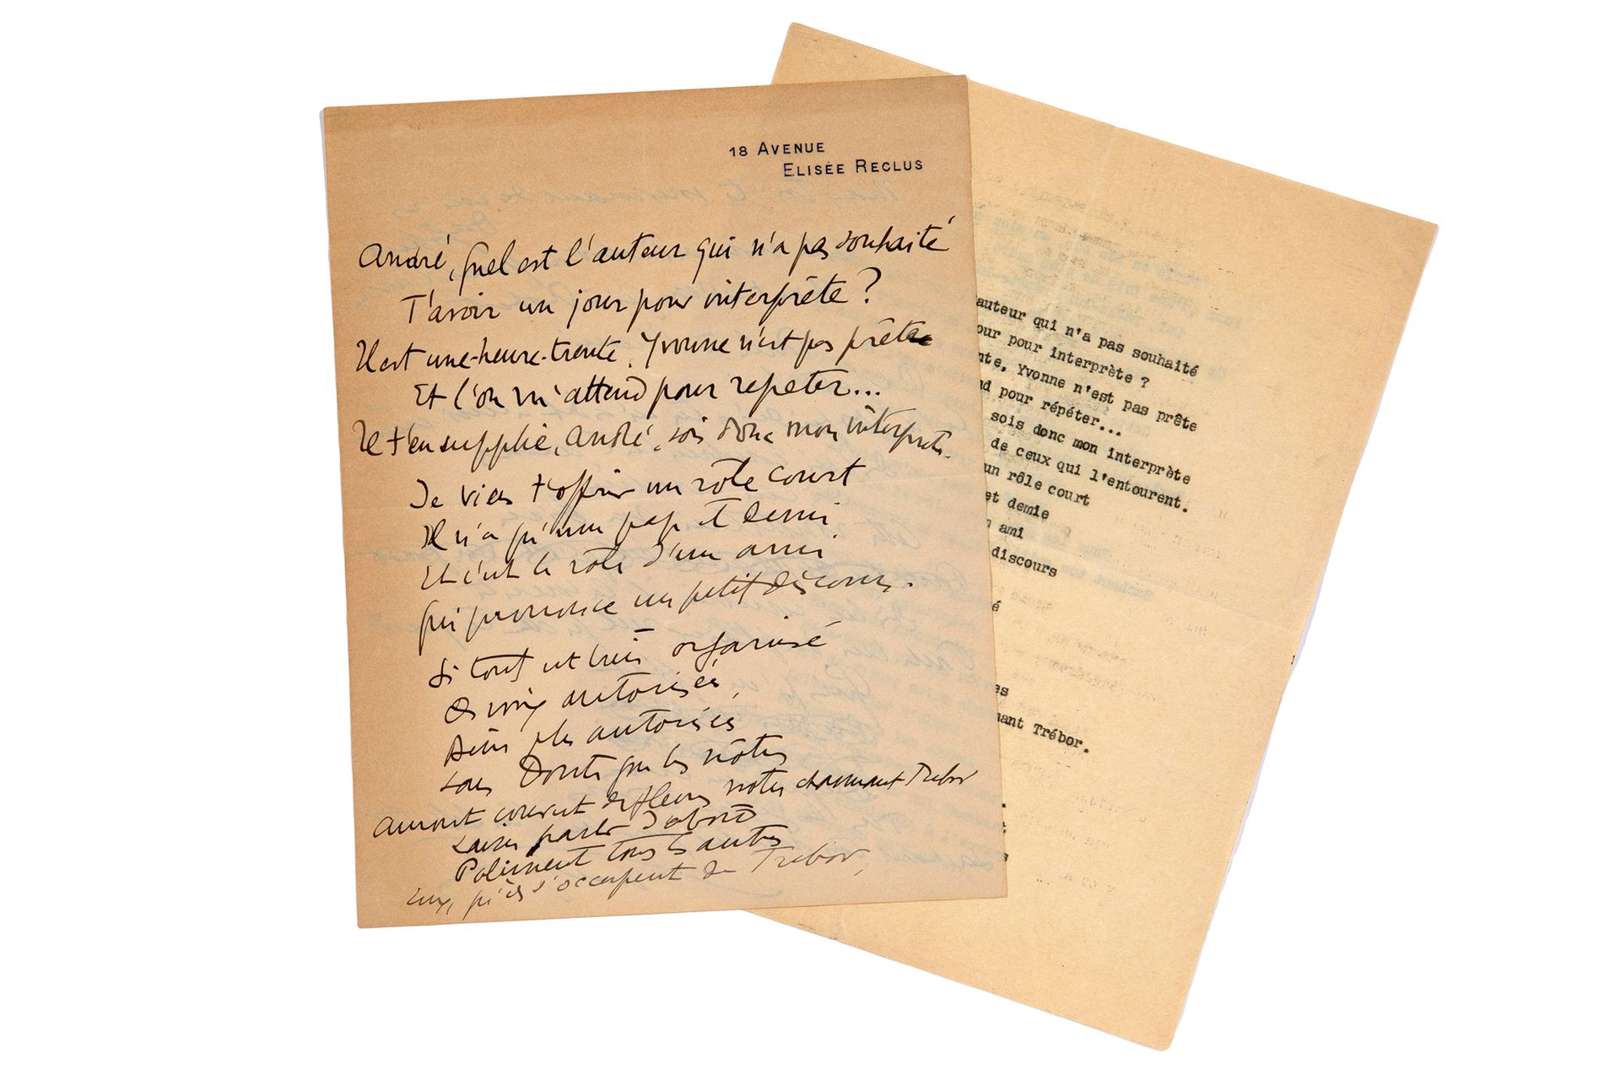 18 AVENUE
ELISÉE RECLUS
André, Quel est l'auteur qui n'a pas souhaité
T'avoir un jour pour interprète ?
Il est une-heure-trente, Yvonne n'est pas prête
Et l'on m'attend pour repeter...
Je t'en supplie, André, sois donc mon interprète.
Je viens t'offrir un rôle court
Il n'a qu'une page et demie
Et c'est le rôle d'un ami
Qui prononce un petit discours.
Si tout est bien organisé
Des voix autorisées,
Bien plus autorisées
Sans Doute que les nôtres
Auront couvert de fleurs notre charmant Trébor
Laisse parler d'abord
Poliment tous les autres
Ceux qui s'occupent de Trébor,
auteur qui n'a pas souhaité
our pour interprète ?
nte, Yvonne n'est pas prête
d pour répéter...
sois donc mon interprète
de ceux qui l'entourent.
un rôle court
et demie
n ami
discours
é
es
mant Trébor.